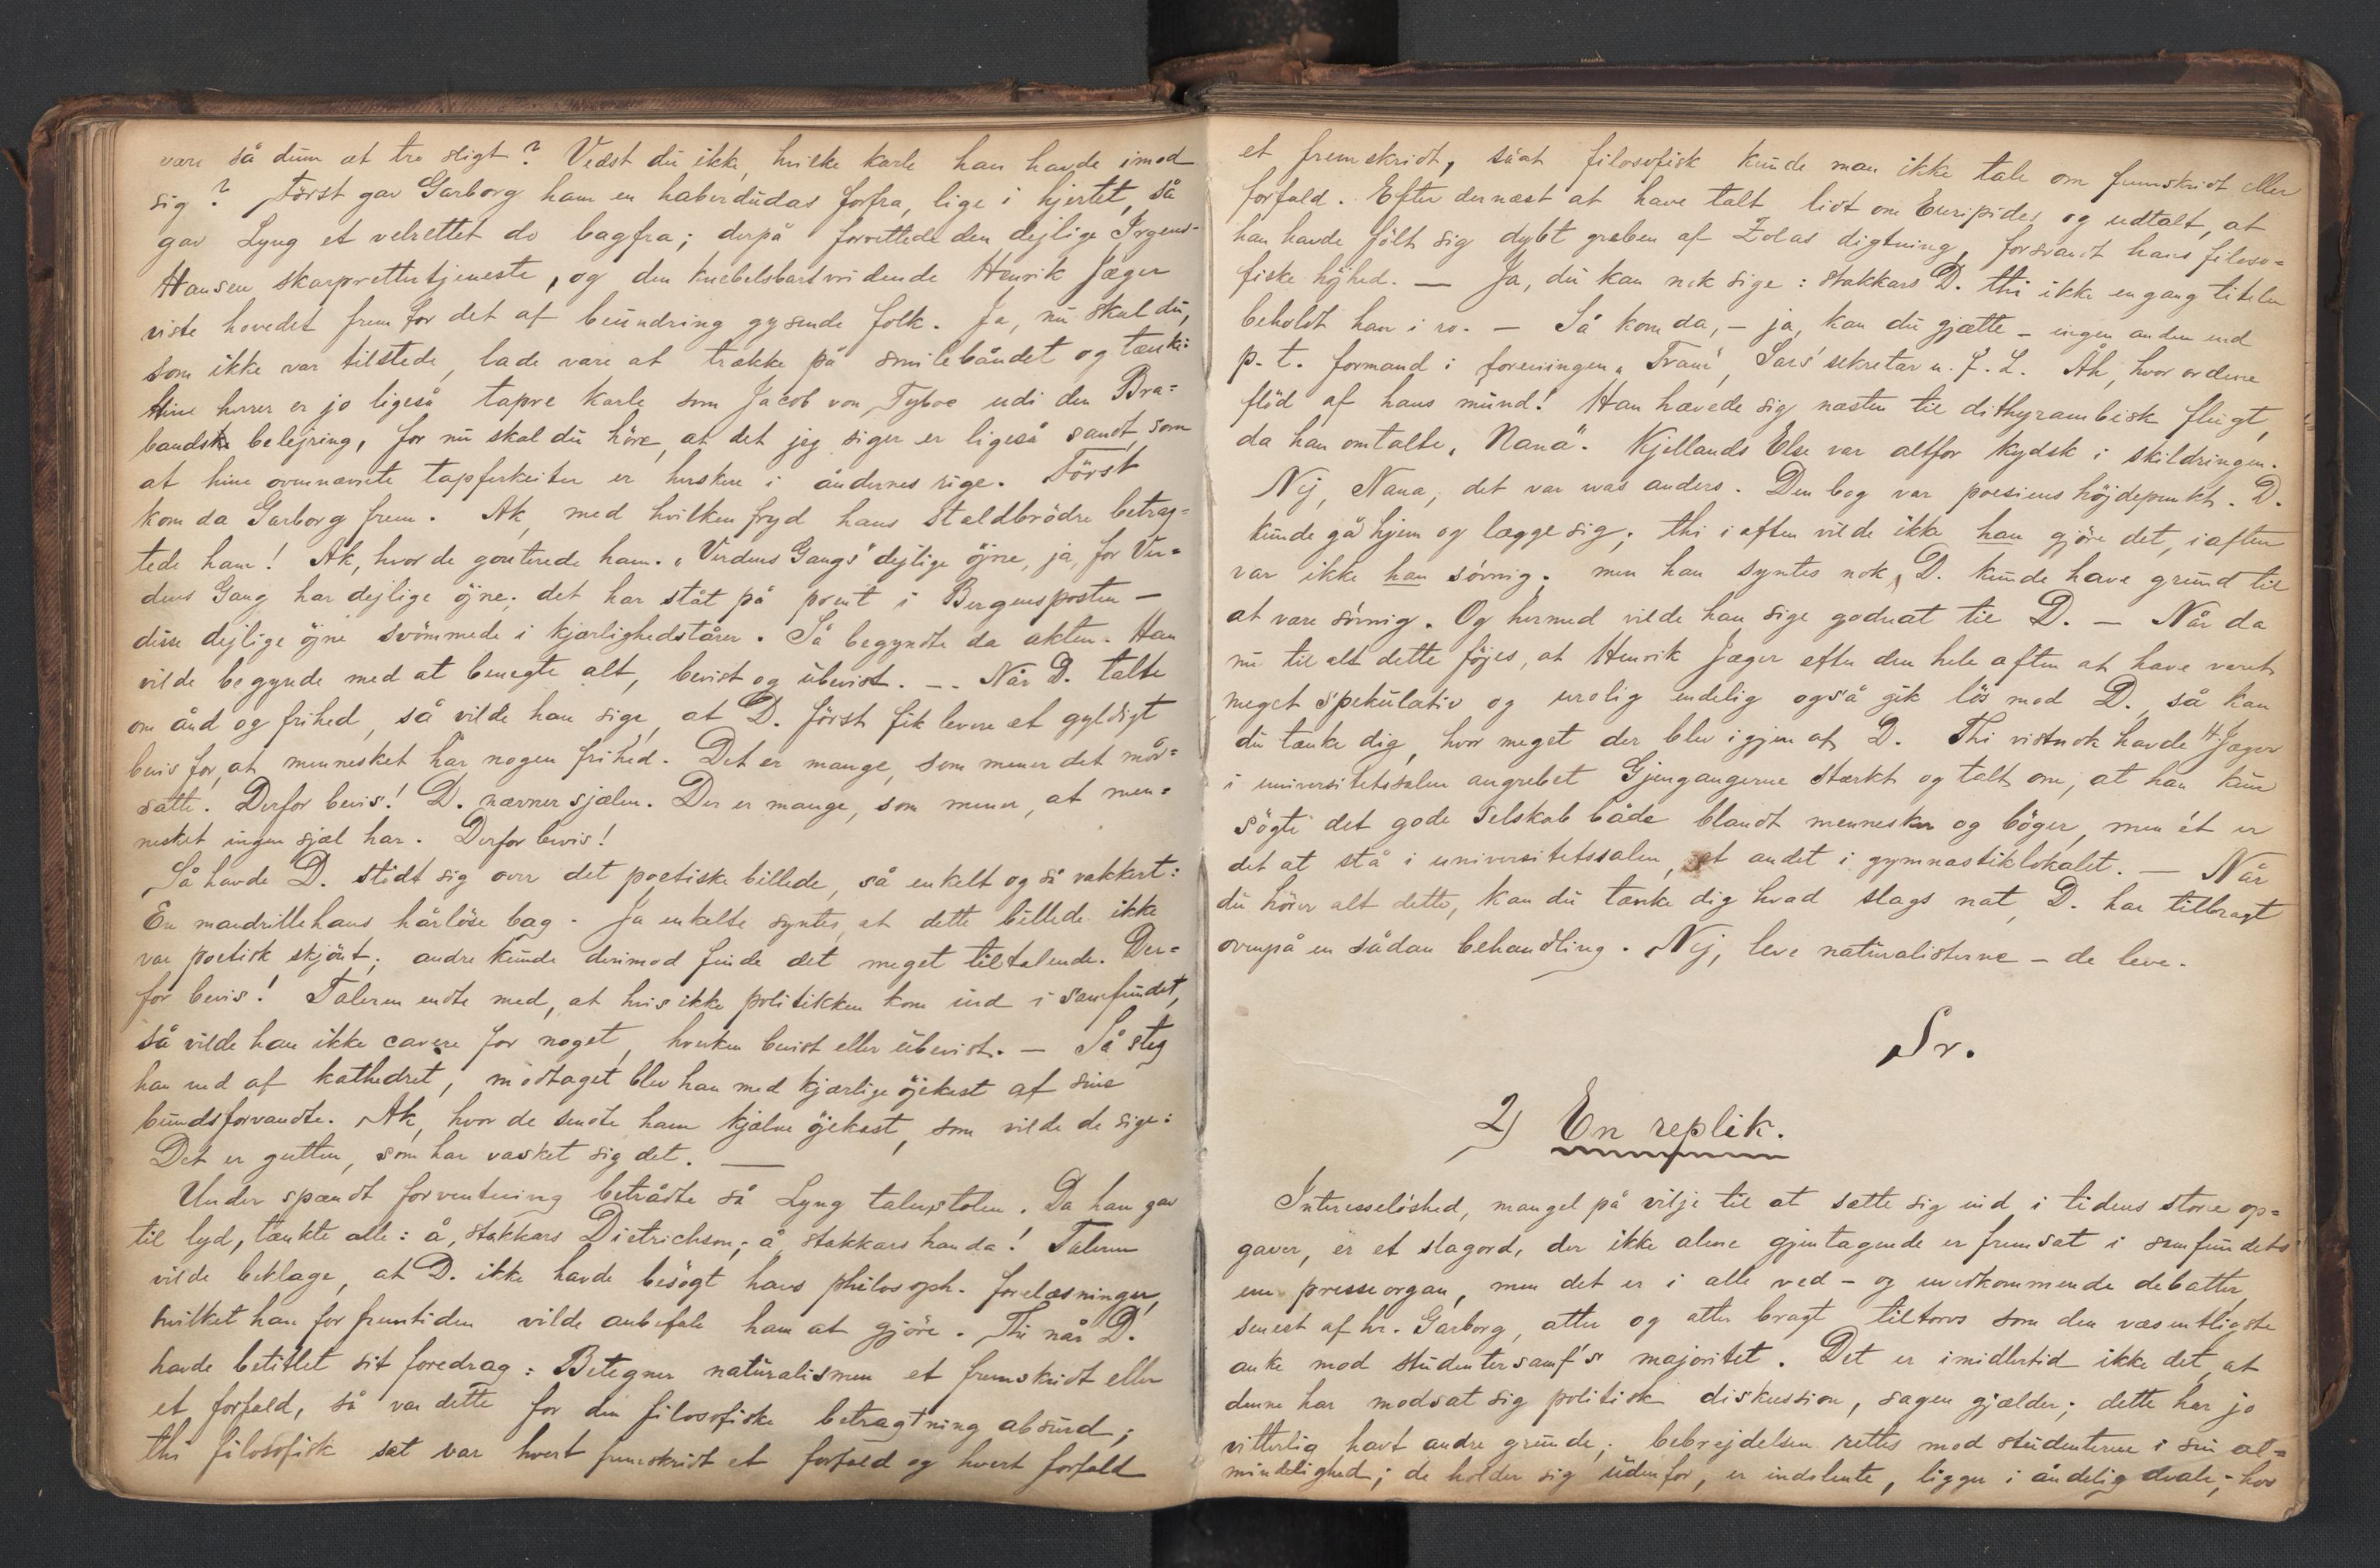 være så dum at tro sligt? Vedst du ikke, hvilke karle han havde imod
sig? Først gav Garborg ham en haberdudas forfra, lige i hjertet, så
gav Lyng et velrettet do bagfra; derpå forrettede den dejlige Irgens-
Hansen skarprettertjeneste, og den knebelsbartvridende Henrik Jæger
viste hovedet frem for det af beundring gysende folk. Ja, nu skal du,
som ikke var tilstede, lade være at trække på smilebåndet og tænke:
Hine herrer er jo ligeså tapre karle som Jacob von Tyboe udi den Bra=
bandske belejring, for nu skal du høre, at det jeg siger er ligeså sandt, som
at hine ovennævnte tapferheiter er herskere i åndernes rige. Först
kom da Garborg frem. Ak, med hvilken fryd hans staldbrødre betrag=
tede ham! Ak, hvor de gouterede ham. "Verdens Gangs" dejlige öjne, ja, for Ver=
dens Gang har dejlige öjne; det har ståt på prent i Bergensposten —
disse dejlige öjne svömmede i kjærlighedstårer. Så begyndte da akten. Han
vilde begynde med at benegte alt, bevist og ubevist. — Når D. talte
om ånd og frihed, så vilde han sige, at D. först fik levere et gyldigt
bevis for, at mennesket har nogen frihed. Det er mange, som mener det mod=
satte. Derfor bevis! D. nævner sjælen. Der er mange, som mener, at men=
nesket ingen sjæl har. Derfor bevis!
Så havde D. stödt sig over det poetiske billede, så enkelt og så vakkert:
En mandrillehans hårlöse bag. Ja enkelte syntes, at dette billede ikke
var poetisk skjönt; andre kunde derimod finde det meget tiltalende. Der=
for bevis! Taleren endte med, at hvis ikke politikken kom ind i samfundet,
så vilde han ikke cavere for noget, hverken bevist eller ubevist. — Så steg
han ned af kathedret, modtaget blev han med kjærlige öjekast af sine
bundsforvandte. Ak, hvor de sendte ham kjælne öjekast, som vilde de sige:
Det er gutten, som har vasket sig det. —
Under spændt forventning betrådte så Lyng talerstolen. Da han gav
til lyd, tænkte alle: å, stakkars Dietrichson; å stakkars han da! Taleren
vilde beklage, at D. ikke havde besögt hans philosoph. forelæsninger,
hvilket han for fremtiden vilde anbefale ham at gjöre. Thi når D.
havde betitlet sit foredrag: Betegner naturalismen et fremskridt eller
et forfald, så var dette for den filosofiske betragtning absurd;
thi filosofisk set var hvert fremskridt et forfald og hvert forfald
et fremskridt, såat filosofisk kunde man ikke tale om fremskridt eller
forfald. Efter dernæst at have talt lidt om Euripides og udtalt, at
han havde fölt sig dybt greben af Zolas digtning, forsvandt hans filoso=
fiske höjhed. — Ja, du kan nok sige: stakkars D. thi ikke engang titelen
beholdt han i ro. — Så kom da, — ja, kan du gjætte — ingen anden end
p. t. formand i foreningen "Fram", Sars' sekretær u. J. L. Åh, hvor ordene
flöd af hans mund! Han hævede sig næsten til dithyrambisk flugt,
da han omtalte "Nana". Kjellands Else var altfor kydsk i skildringen.
Nej, Nana, det var was anders. Den bog var poesiens höjdepunkt. D.
kunde gå hjem og lægge sig; thi i aften vilde ikke han gjöre det, i aften
var ikke han sövnig; men han syntes nok, D. kunde have grund til
at være sövnig. Og hermed vilde han sige godnat til D. — Når da
nu til alt dette föjes, at Henrik Jæger efter den hele aften at have været
meget spekulativ og urolig endelig også gik lös mod D., så kan
du tænke dig, hvor meget der blev igjen af D. Thi vistnok havde H. Jæger
i universitetssalen angrebet Gjengangerne stærkt og talt om, at han kun
sögte det gode selskab både blandt mennesker og böger, men ét er
det at stå i universitetssalen, et andet i gymnastiklokalet. — Når
du hörer alt dette, kan du tænke dig hvad slags nat, D. har tilbragt
ovenpå en sådan behandling. Nej, leve naturalisterne — de leve.
Sr.
2) En replik.
Interesselöshed, mangel på vilje til at sætte sig ind i tidens store op=
gaver, er et slagord, der ikke alene gjentagende er fremsat i samfundets
ene presseorgan, men det er i alle ved- og uvedkommende debatter,
senest af hr. Garborg, atter og atter bragt tiltorvs som den væsentligste
anke mod studentersamf's majoritet. Det er imidlertid ikke det, at
denne har modsat sig politisk diskussion, sagen gjælder; dette har jo
vitterlig havt andre grunde; bebrejdelsen rettes mod studenterne i sin al=
mindelighed; de holder sig udenfor, er indolente, ligger i åndelig dvale; hos